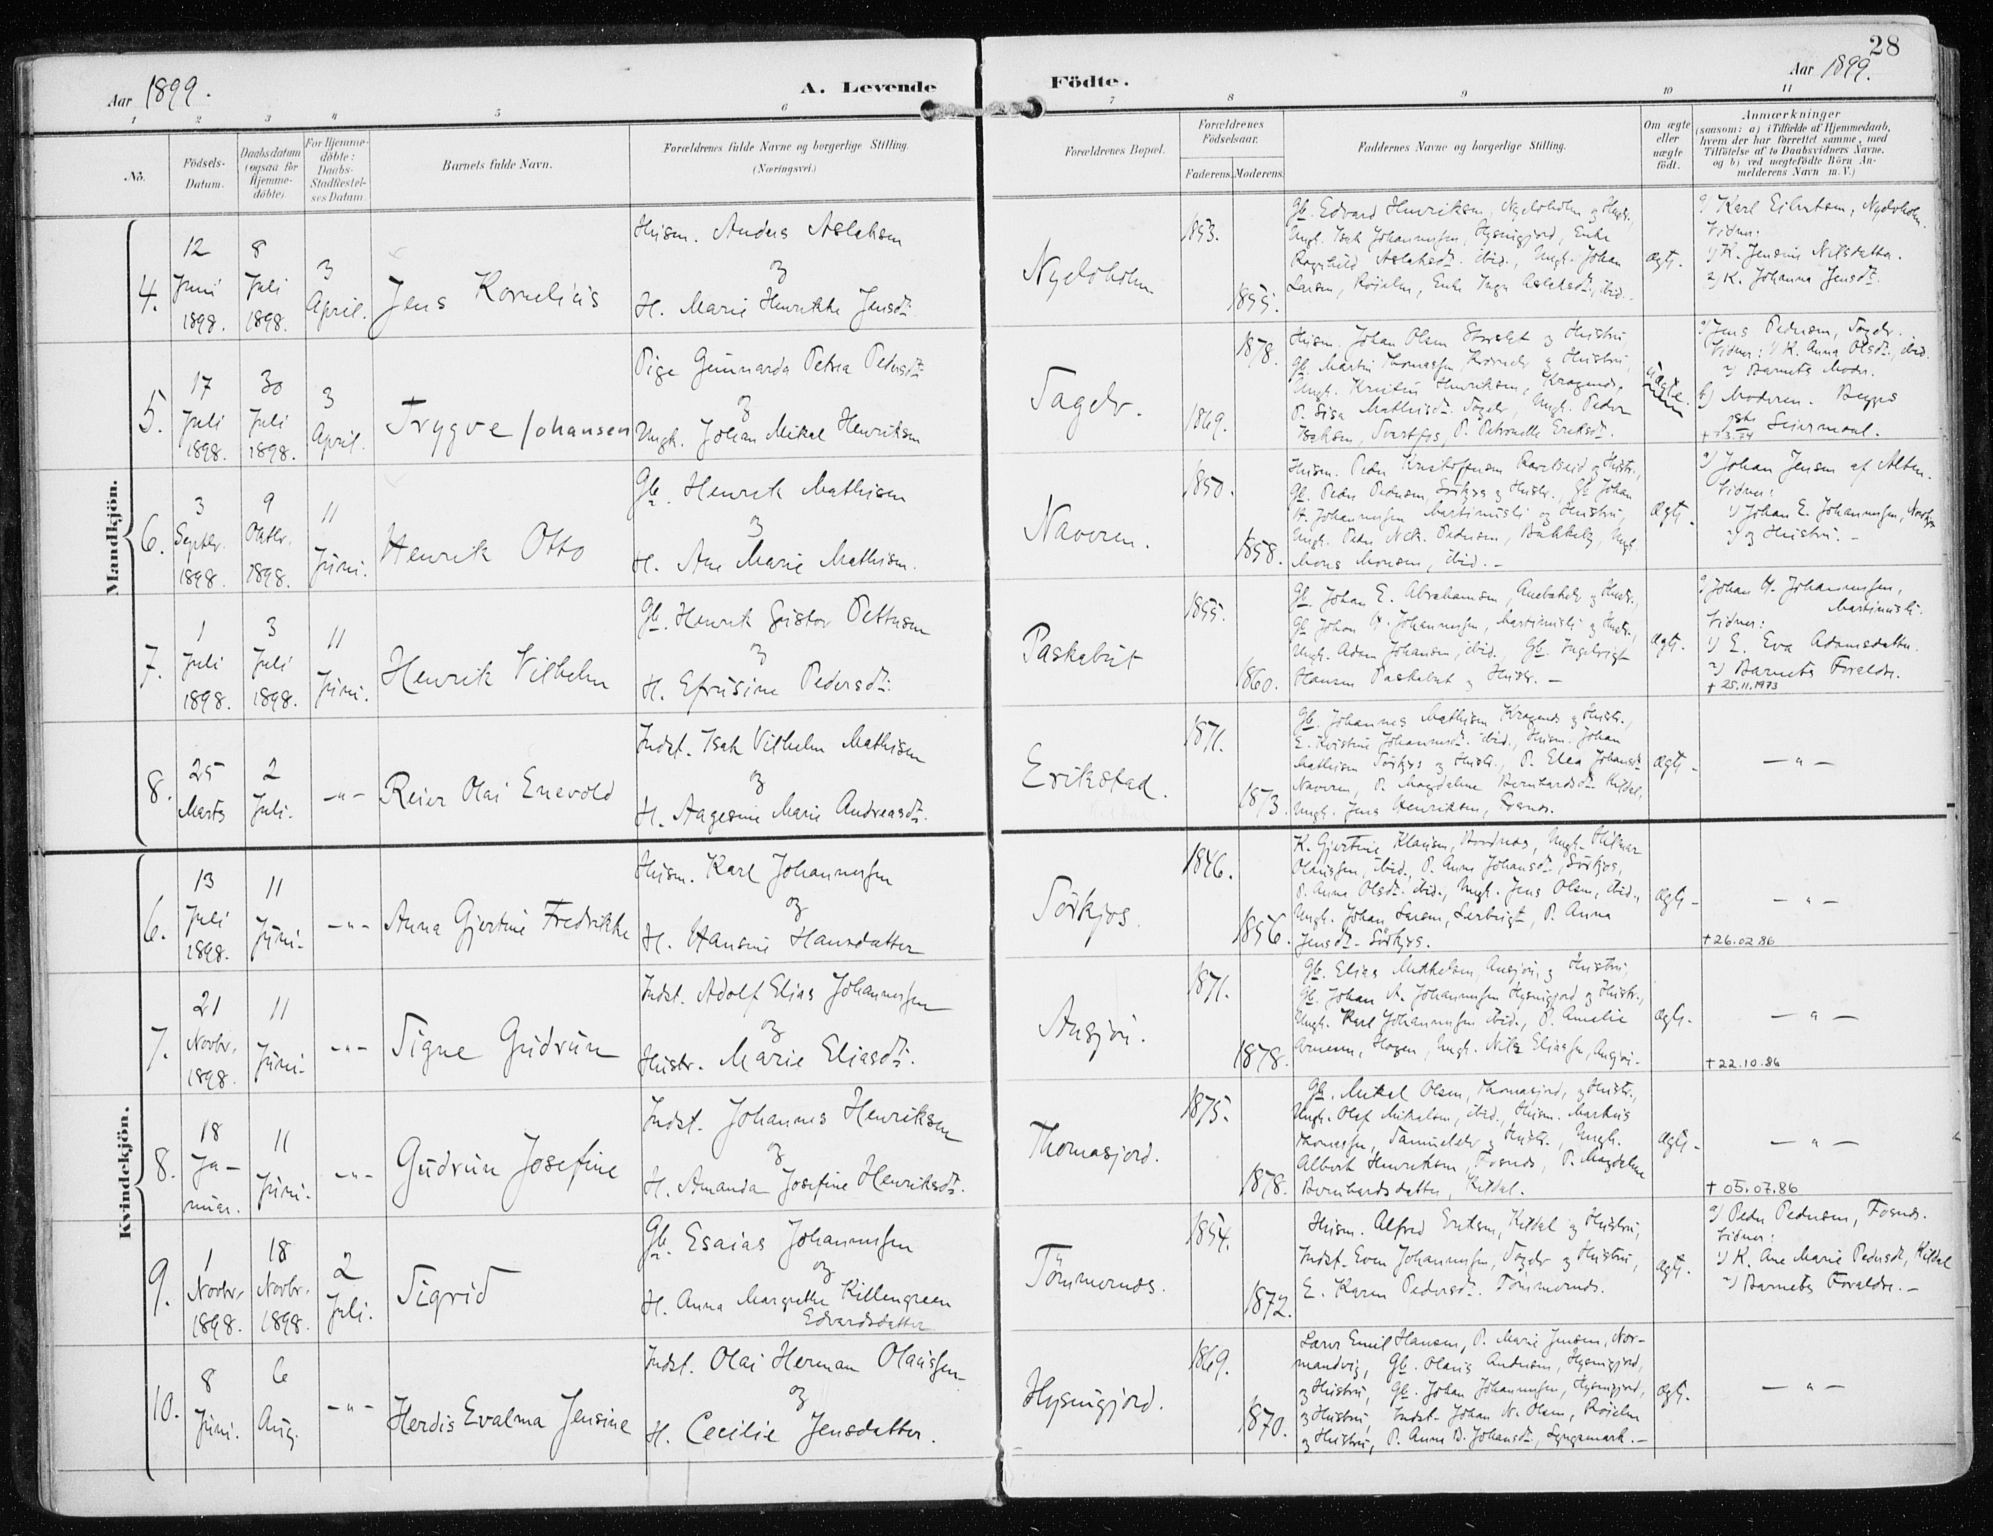 28
Aar 1899.
A. Levende
Födte.
Aar 1899.
1 2 3 4 5 6 7 8 9 10 11
No.
Födsels-Datum.
Daabsdatum (ogsaa for Hjemme-döbte).
For Hjemme-döbte: Daabs-Stadfæstel-ses Datum.
Barnets fulde Navn.
Forældrenes fulde Navne og borgerlige Stilling.
(Næringsvei.)
Forældrenes Bopæl.
Forældrenes Födselsaar.
Faderens. Moderens.
Faddernes Navne og borgerlige Stilling.
Om ægte eller uægte födt.
Anmærkninger
(saasom: a) i Tilfælde af Hjemmedaab,
hvem der har forrettet samme, med
Tilföielse af to Daabsvidners Navne.
og b) ved uægtefödte Börn An-
melderens Navn m. V.)
Mandkjön.
4.
12 Juni 1898.
8 Juli 1898.
3 April.
Jens Kornelius
Husm. Anders Aslaksen
og
H. Marie Henrikke Jensdtr.
Nyelvholm
1853.
1855.
Gb. Edvard Henriksen, Nyelvholm og Hustr.,
Ungk. Isak Johannessen, Hysingjord, Enke
Ragnhild Aslaksdtr. ibid., Ungk. Johan
Larsen, Röielen, Enke Inga Aslaksdtr., ibid.
ægte.
a) Karl Eilertsen, Nyelvholm.
Vidner:
1) K. Jensine Nilsdatter.
2) K. Johanna Jensdtr.
5.
17 Juli 1898.
30 Juli 1898.
3 April.
Trygve Johansen
Pige Gunnarda Petra Pedersdtr.
og
Ungk. Johan Mikal Henriksen
Tagelv.
1878.
1869.
Husm. Johan Olsen Storslet og Hustru,
Gb. Martin Thomassen, Kornelv og Hustru,
Ungk. Kristin Henriksen, Kragnæs,
P. Sisa Mathisdtr. Tagelv, Ungk. Peder
Isaksen, Svartfos, P. Petronelle Eriksdtr.
uægte.
a) Jens Pedersen, Tagelv.
Vidner: 1) K. Anna Olsdtr., ibid.
2) Barnets Moder.
b) Moderen. Begges
Leiermaal.
6.
3 Septbr. 1898.
9 Oktbr. 1898.
11 Juni.
Henrik Otto
Gb. Henrik Mathisen
og
H. Ane Marie Mathisen.
Navaren.
1850.
1858.
Gb. Peder Pedersen, Sörkjos og Hustr., Gb. Johan
H. Johannessen Martinusli og Hustru,
Ungk. Peder Nik. Pedersen, Bakkeby, Ungk.
Mons Monsen, ibid. –
ægte.
a) Johan Jensen af Alten.
Vidner:
1) Johan E. Johannessen, Nordkjos
2) og Hustru. –
7.
1 Juli 1898.
3 Juli 1898.
11 Juni.
Henrik Vilhelm
Gb. Henrik Gustav Pettersen
og
H. Efrusine Pedersdtr.
Paskebut
1855.
1860.
Gb. Johan E. Abrahamsen, og Hustr.,
Gb. Johan H. Johannessen, Martinusli og Hustr.,
Ungk. Adam Johansen, ibid., Gb. Ingebrigt
Hansen Paskebut og Hustr. –
ægte.
a) Johan H. Johannessen,
Martinusli.
Vidner:
1) E. Eva Adamsdatter.
2) Barnets Forældre.
† 25.11.1973
8.
25 Marts
2 Juli.
– „ –
Reier Olai Enevold
Indst. Isak Vilhelm Mathisen
og
H. Aagesine Marie Andreasdtr.
Erikstad.
1871.
1873.
Gb. Johannes Mathisen Kragnæs og Hustr.,
E. Kristine Johannesdtr. ibid., Husm. Johan
Mathisen Sörkjos og Hustr., P. Elea Johansdtr.
Navaren, P. Magdaline Bernhardsdtr. Kitdal,
Ungk. Jens Henriksen, Fosnæs.
ægte –
– „ –
Kvindekjön.
6.
13 Juli 1898.
11 Juni –
– „ –
Anna Gjertine Fredrikke
Husm. Karl Johannessen
og
H. Hansine Hansdatter
Sörkjos.
1846.
1856.
K. Gjertine Klausen, Nordnæs, Ungk. Hilmar
Olaussen, ibid., P. Anna Johansdtr. Sörkjos,
P. Anna Olsdtr. ibid., Ungk. Jens Olsen, ibid.,
Ungk. Johan Larsen, P. Anna
Jensdtr. Sörkjos.
ægte –
– „ –
† 26.02.86
7.
21 Novbr. 1898.
11 Juni –
– „ –
Signe Gudrun
Indst. Adolf Elias Johannessen
og
Hustr. Marie Eliasdtr.
Ansjøn.
1871.
1878.
Gb. Elias Mikkelsen, Ansjøn, og Hustru,
Gb. Johan A. Johannessen Hysingjord og Hustr.,
Ungk. Karl Johannessen ibid., P. Amelie
Arnesen, Hagen, Ungk. Nils Eliassen, Ansjøn –
ægte.
– „ –
† 22.10.86
8.
18 Ja-nuar.
11 Juni.
– „ –
Gudrun Josefine
Indst. Johannes Henriksen
og
H. Amanda Josefine Henriksdtr.
Thomasjord.
1875.
1878.
Gb. Mikal Olsen, Thomasjord, og Hustr.,
Ungk. Olaf Mikalsen, ibid., Husm. Markus
Thomassen, Samuelelv og Hustr., Ungk.
Albert Henriksen, Fosnæs, P. Magdaline
Bernhardsdatter, Kitdal.
ægte –
– „ –
† 05.07.86
9.
1 Novbr. 1898.
18 Novbr. 1898.
2 Juli.
Sigrid
Gb. Esaias Johannessen
og
H. Anna Margrethe Killengreen
Edvardsdatter
Tömmernes.
1854.
1872.
Husm. Alfred Eriksen, Kitdal og Hustru,
Indst. Even Johannessen, Tagelv og Hustru,
E. Karen Pedersdtr. Tömmernes.
ægte.
a) Peder Pedersen, Fosnæs.
Vidner:
1) K. Ane Marie Pedersdtr, Kitdal
2) Barnets Forældre. –
10.
8 Juni.
6 Aug.
– „ –
Herdis Evalma Jensine
Indst. Olai Herman Olaussen
og
H. Cecilie Jensdatter.
Hysingjord.
1869.
1870.
Lærer Emil Hansen, P. Marie Jensen, Nor-
mandvig, Gb. Olaus Andersen, Hysingjord,
og Hustru, Gb. Johan Johannessen, Hysingjord,
og Hustru, Indst. Johan N. Olsen, Röielen
og Hustru, P. Anne B. Johansdtr, Lyngsmark. –
ægte.
– „ –